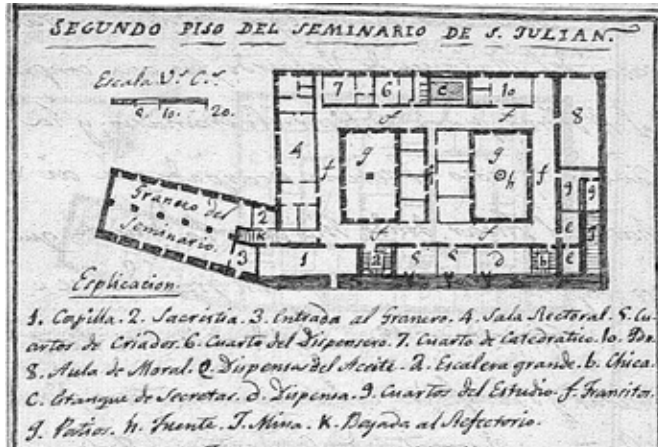 SEGUNDO PISO DEL SEMINARIO DE S. JULIAN.
Escala Vs. Cs.
5. 10. 20.
7 6 c 10
8
4 f g f f g h f
9 9
Granero del
Seminario.
2
K
e J
3 1 a 5 5 d b e
Esplicacion.
1. Capilla. 2. Sacristia. 3. Entrada al Granero. 4. Sala Rectoral. 5. Cu-
artos de Criados. 6. Cuarto del Dispensero. 7. Cuarto de Catedratico. 10. Ydn.
8. Aula de Moral. Dispensas del Aceite. a. Escalera grande. b. Chica.
C. Estanque de Secretas. d. Dispensa. 9. Cuartos del Estudio. f. Transitos.
g. Patios. h. Fuente. J. Mina. K. Bajada al Refectorio.